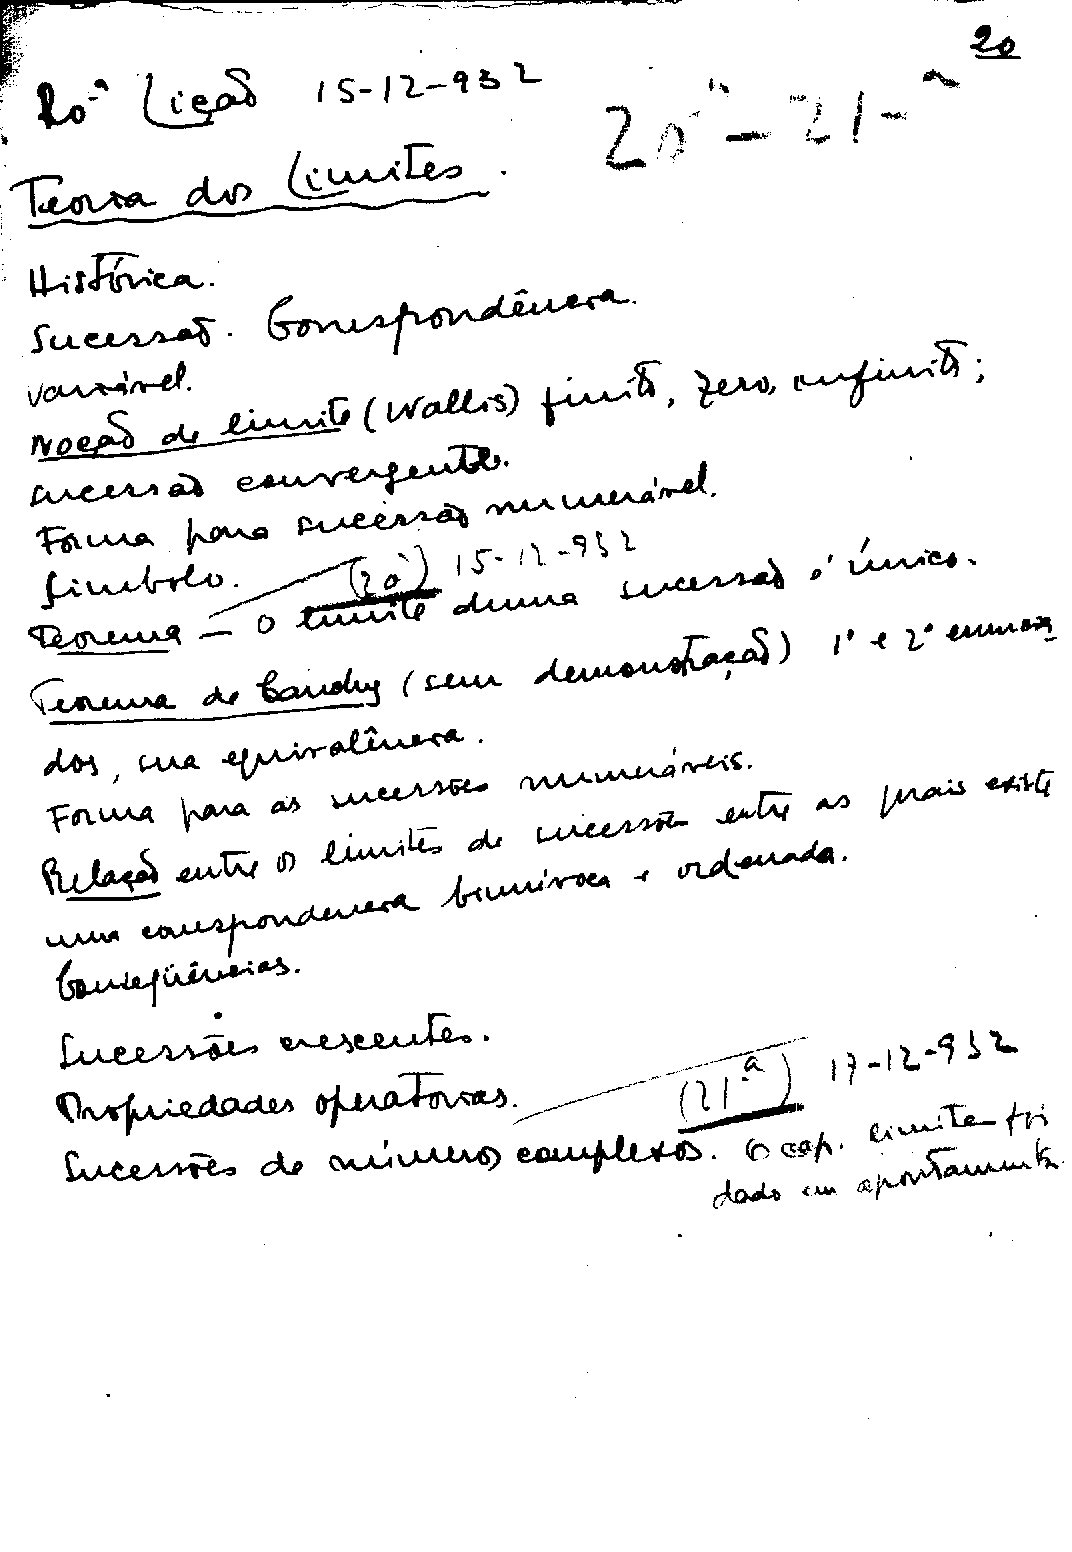 20
20-ª Lição 15-12-932
20ª - 21-ª
Teoria dos Limites.
Histórica.
Sucessão. Correspondência.
Variável.
Noção de limite (Wallis) finito, zero, infinito;
sucessão convergente.
Forma para sucessão numerável.
Símbolo. (20ª) 15-12-932
Teorema — O limite duma sucessão é único.
Teorema de Cauchy (sem demonstração) 1º e 2º enuncia-
dos, sua equivalência.
Forma para as sucessões numeráveis.
Relação entre os limites de sucessões entre as quais existe
uma correspondencia biunívoca e ordenada.
Conseqüências.
Sucessões crescentes.
Propriedades operatorias. (21-ª) 17-12-932
Sucessões de números complexos. O cap. limites foi
dado em apontamentos.